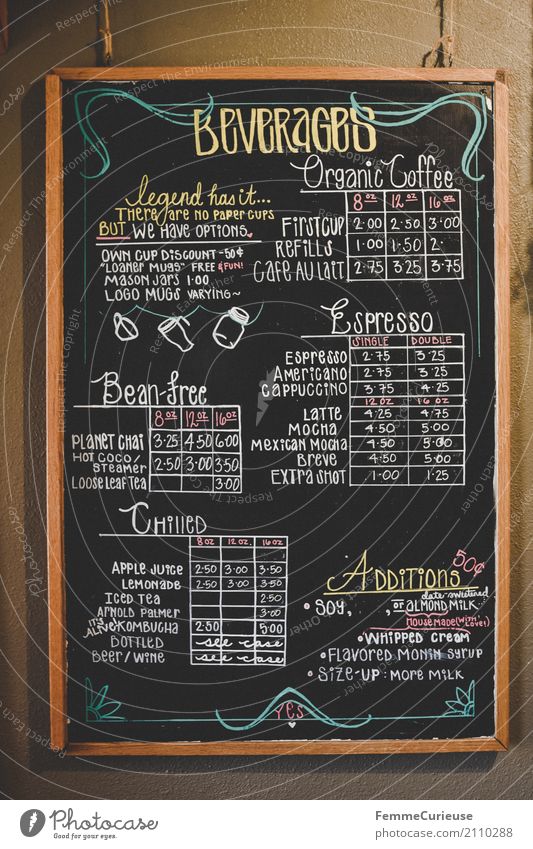 BEVERAGES
legend has it...
THERE ARE NO PAPER CUPS
BUT WE HAVE OPTIONS.
OWN CUP DISCOUNT -50¢
"LOANER MUGS" FREE & FUN!
MASON JARS 1.00
LOGO MUGS VARYING~
Organic Coffee
8oz 12oz 16oz
FIRST CUP 2.00 2.50 3.00
REFILLS 1.00 1.50 2.
CAFE AU LAIT 2.75 3.25 3.75
ESPRESSO
SINGLE DOUBLE
ESPRESSO 2.75 3.25
AMERICANO 2.75 3.25
CAPPUCCINO 3.75 4.25
12 OZ 16 OZ
LATTE 4.25 4.75
MOCHA 4.50 5.00
MEXICAN MOCHA 4.50 5.00
BREVE 4.50 5.00
EXTRA SHOT 1.00 1.25
Bean-free
8oz 12oz 16oz
PLANET CHAI 3.25 4.50 6.00
HOT COCO/
STEAMER 2.50 3.00 3.50
LOOSE LEAF TEA 3.00
CHILLED
8oz 12oz. 16oz
APPLE JUICE 2.50 3.00 3.50
LEMONADE 2.50 3.00 3.50
ICED TEA 2.50
ARNOLD PALMER 3.00
IT'S ALIVE KOMBUCHA 2.50 5.00
BOTTLED see case
BEER/WINE see case
ADDITIONS 50¢
date sweetened
• SOY, , or ALMOND MILK
HOUSEMADE (WITH LOVE!)
• WHIPPED CREAM
• FLAVORED MONIN SYRUP
• SIZE-UP: MORE MILK
YES
Photocase
Good for your eyes.
FemmeCurieuse
www.photocase.com/2110288